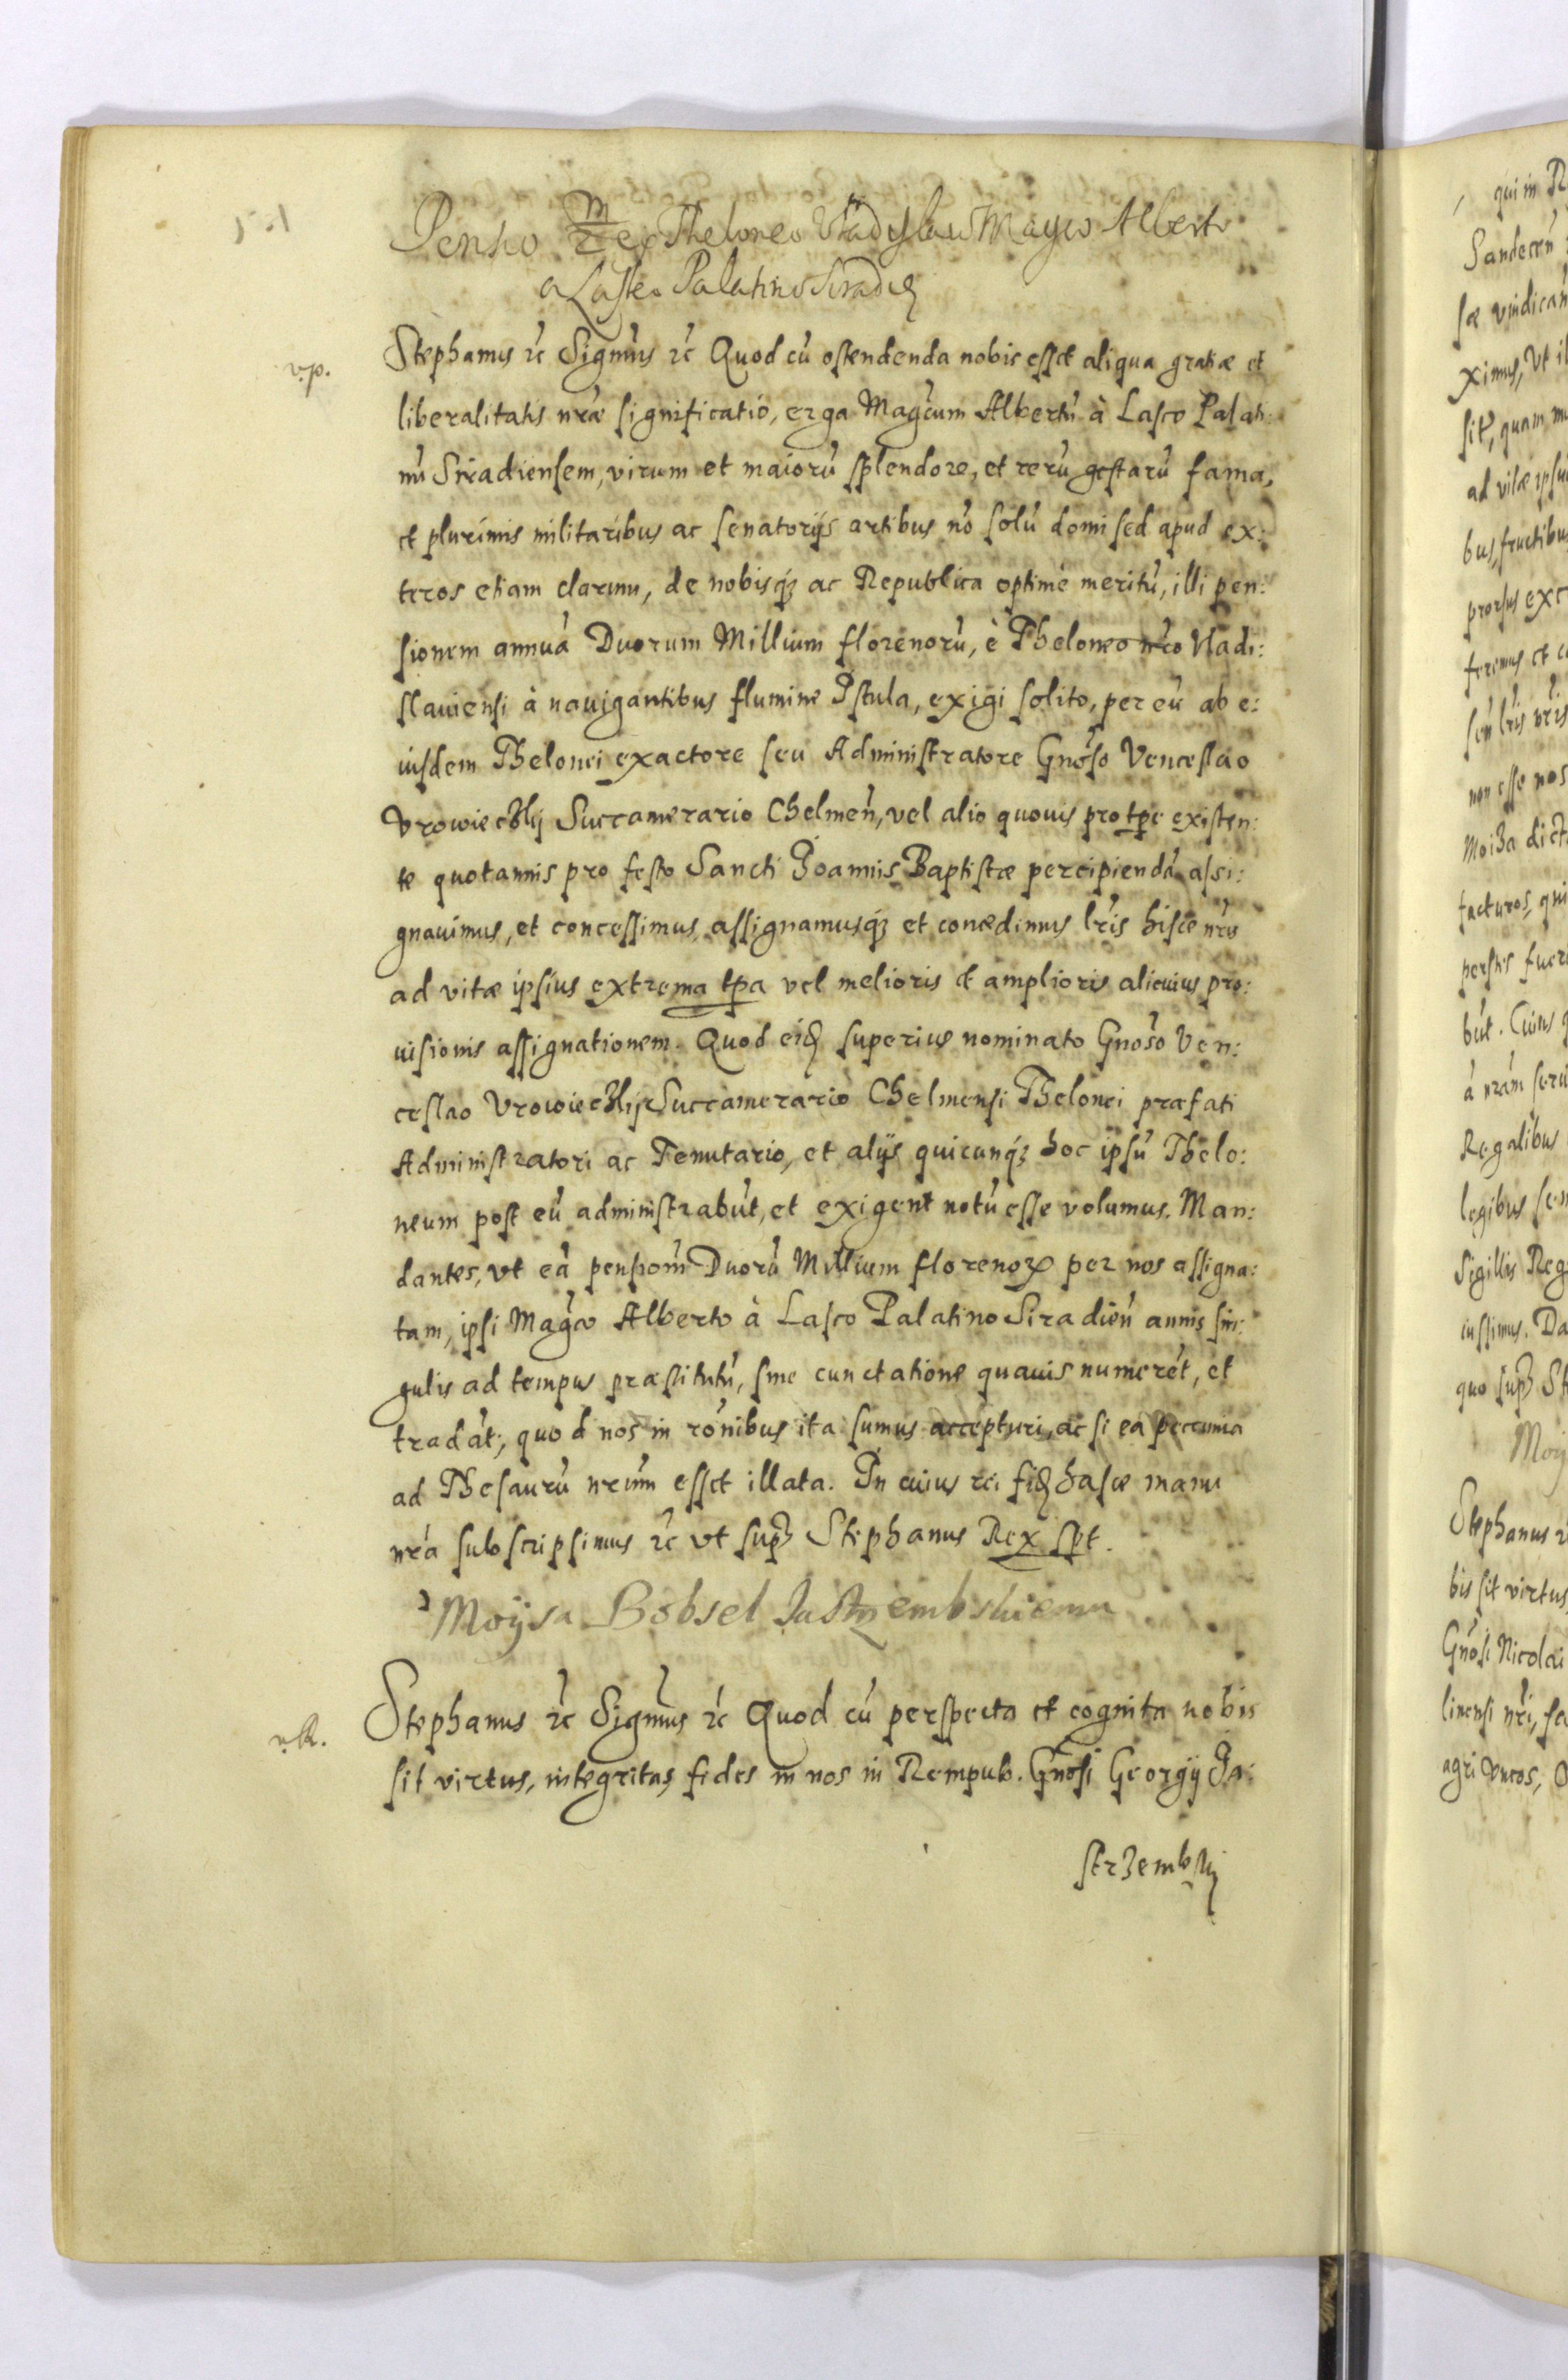 Pensio M/2 ex Theloneo Vladyslaw Magco Alberto
a Lasko Palatino Siradien
v.p.
Stephanus rc Signmus rc Quod cū ostendenda nobis esset aliqua gratiæ et
liberalitatis nræ significatio, erga Magcum Albertū à Lasco Palati:
nū Siradiensem, virum et maiorū splendore, et rerū gestarū fama,
et plurimis militaribus ac senatorijs artibus nō solū domi sed apud ex:
teros etiam clarum, de nobisq́ȝ ac Republica optimè meritū, illi pen:
sionem annuā Duorum Millium florenorū, è Theloneo nrō Vladi:
slauiensi à nauigantibus flumine Istula, exigi solito, per eū ab e:
iusdem Thelonei exactore seu Administratore Gnoso Venceslao
Vrowieczkÿ Succamerario Chelmeń, vel alio quouis pro tpe existen:
te quotannis pro festo Sancti Joannis Baptistæ percipiendā assi:
gnauimus, et concessimus, assignamusq́ȝ et concedimus lris hisce nris
ad vitæ ipsius extrema tpa vel melioris et amplioris alicuius pro:
uisionis assignationem. Quod eidȝ superius nominato Gnoso Ven:
ceslao Vrowieczkÿ Succamerario Chelmensi Thelonei præfati
Administratori ac Tenutario, et alijs quicunq́ȝ hoc ipsū Thelo:
neum post eū administrabūt, et exigent notū esse volumus. Man:
dantes, vt eā pensionē Duorū Millium florenorꝝ per nos assigna:
tam, ipsi Magco Alberto à Lasco Palatino Siradień annis sin:
gulis ad tempus præstitutū, sine cunctatione quauis numerēt, et
tradāt, quod nos in rōnibus ita sumus accepturi, ac si ea pecunia
ad Thesaurū nrum esset illata. In cuius rei fidȝ hasce manu
nrā subscripsimus rc vt supȝ Stephanus Rex spt.
Moÿsa Bobsel Jastrzembskiemu
v.k.
Stephanus rc Sigmus rc Quod cū perspecta et cognita nobis
sit virtus, integritas, fides in nos in Rempub. Gnosi Georgij Ja:
strzembskÿ
qui in R
Sandeceń
sæ vindican
ximus, Vt il
sit, quam
ad vitæ ipsiu
bus, fructibus
prorsus exc
feremus et
seu lris nris
non esse nos
Moiza dict
facturos, qui
būt. Cuius
à nram
Regalibus
legibus
Sigillis Reg
iussimus. Da
quo supȝ St
Moÿ
Stephanus
bis sit virtus,
Gnosi Nicolai
linensi nri,
agri vncos,